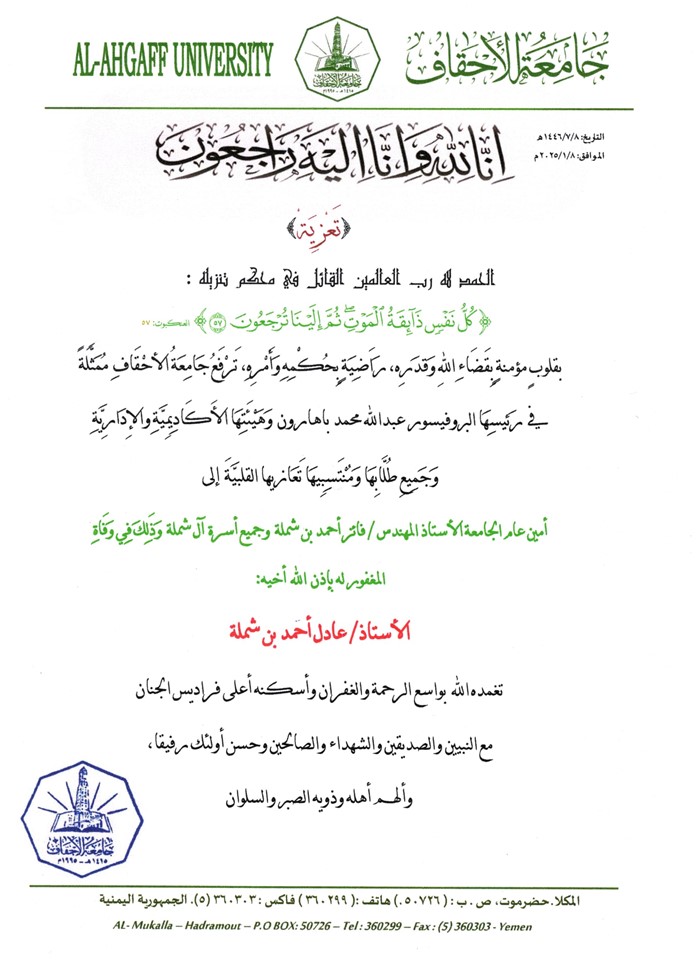 AL-AHGAFF UNIVERSITY
جامعة الأحقاف
١٤١٥هـ - ١٩٩٥م
جامعة الأحقاف
التاريخ: ١٤٤٦/٧/٨هـ
الموافق: ٢٠٢٥/١/٨م
إنا لله وانا اليه راجعون
﴿تعزية﴾
الحمد لله رب العالمين القائل في محكم تنزيله :
﴿ كُلُّ نَفْسٍ ذَآئِقَةُ ٱلْمَوْتِ ۖ ثُمَّ إِلَيْنَا تُرْجَعُونَ ۝٥٧ ﴾ العنكبوت: ٥٧
بقلوبٍ مؤمنةٍ بِقَضَاءِ اللهِ وَقَدَرِه، رَاضِيَةٍ بِحُكْمِهِ وَأَمْرِهِ، تَرْفَعُ جَامِعَةُ الأَحْقَافِ مُمَثَّلَةً
في رئيسِهَا البروفيسور عبدالله محمد باهارون وَهَيْئَتِهَا الأَكَادِيمِيَّةِ وَالإِدَارِيَّةِ
وَجَمِيعِ طُلَّابِهَا وَمُنْتَسِبِيهَا تَعَازيها القلبيَّةَ إلى
أمين عام الجامعة الأستاذ المهندس / فائز أحمد بن شملة وجميع أسرة آل شملة وَذَلِكَ فِي وَفَاةِ
المغفور له بإذن الله أخيه:
الأستاذ/ عادل أحمد بن شملة
تغمده الله بواسع الرحمة والغفران وأسكنه أعلى فراديس الجنان
مع النبيين والصديقين والشهداء والصالحين وحسن أولئك رفيقا،
وألهم أهله وذويه الصبر والسلوان
جامعة الأحقاف
١٤١٥هـ - ١٩٩٥م
المكلا. حضرموت، ص . ب : (٥٠٧٢٦ .) هاتف :( ٣٦٠٢٩٩ ) فاكس : ٣٦٠٣٠٣ (٥). الجمهورية اليمنية
AL- Mukalla – Hadramout – P.O BOX: 50726 – Tel : 360299 – Fax : (5) 360303 - Yemen